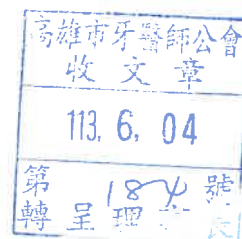 高雄市牙醫師公會
收文章
113. 6. 04
第 1874 號
轉呈理